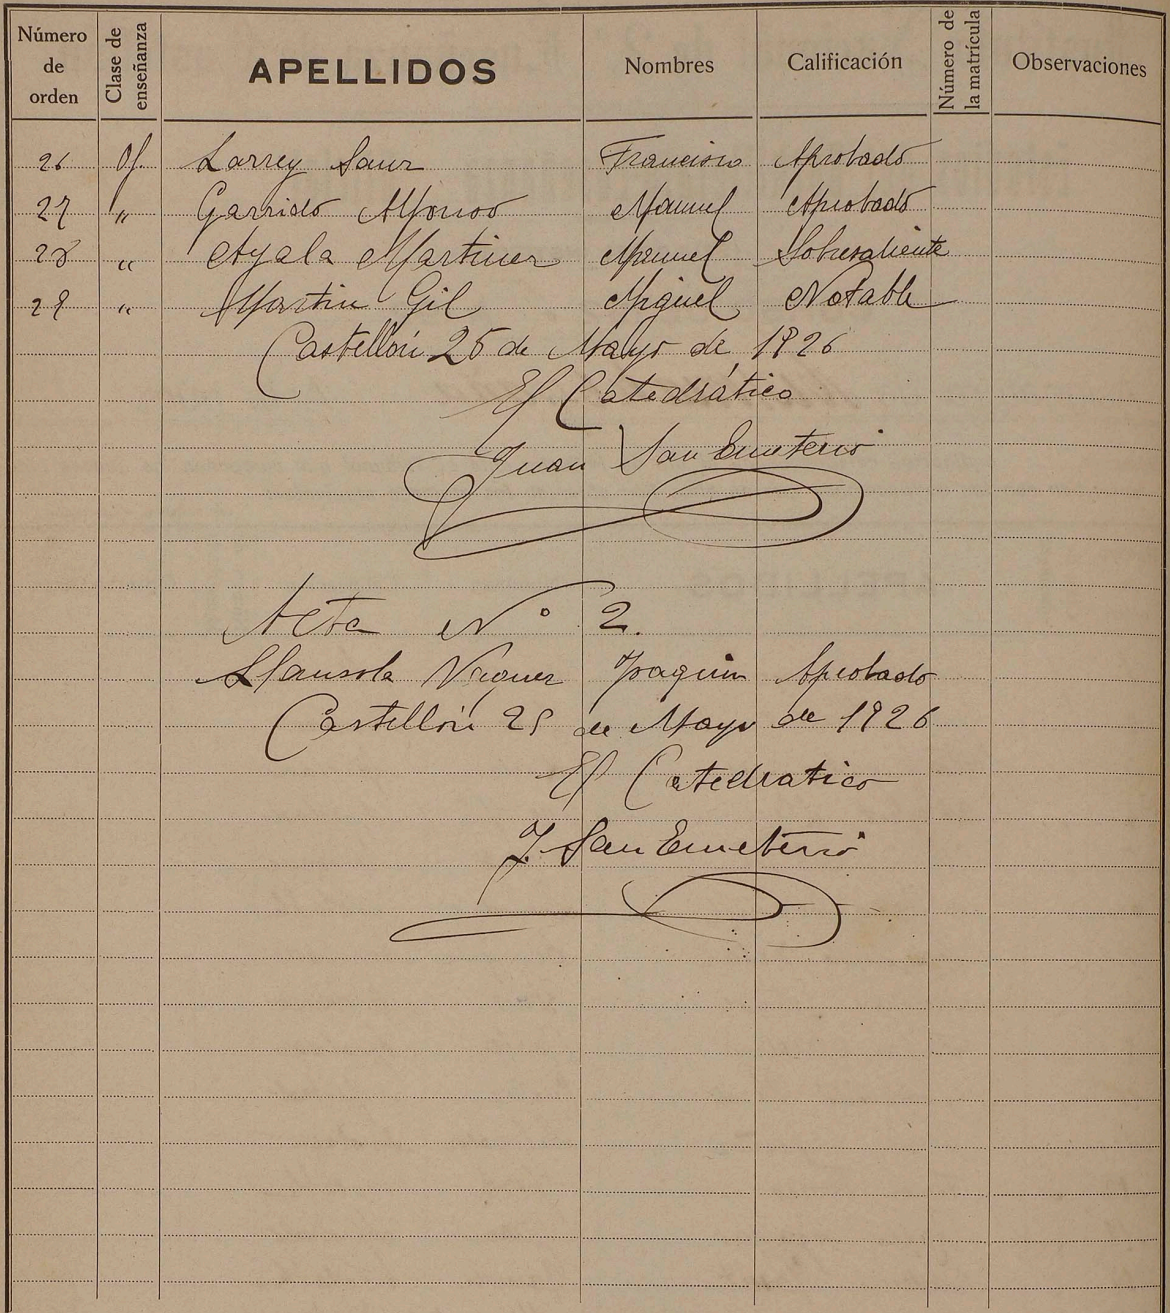 Número de orden Clase de enseñanza APELLIDOS Nombres Calificación Número de la matrícula Observaciones
26 Of. Larrey Sanz Francisco Aprobado
27 " Garrido Alfonso Manuel Aprobado
28 " Ayala Martinez Manuel Sobresaliente
29 " Martin Gil Miguel Notable
Castellón 25 de Mayo de 1926
El Catedrático
Juan San Emeterio
Acta N.º 2.
Llansola Joaquin Aprobado
Castellón 29 de Mayo de 1926
El Catedratico
J. San Emeterio